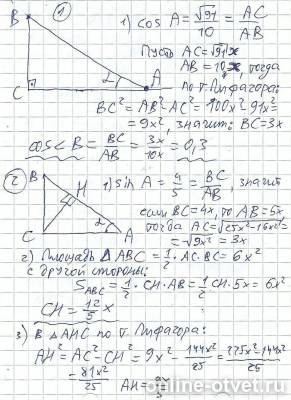 B
①
1) cos A = √91/10 = AC/AB
Пусть AC = √91x
AB = 10x, тогда
по т. Пифагора:
C
α
A
BC² = AB² - AC² = 100x² - 91x² =
= 9x², значит: BC = 3x
cos < B = BC/AB = 3x/10x = 0,3
②
B
H
C
α
A
1) sin A = 4/5 = BC/AB, значит
если BC = 4x, то AB = 5x,
тогда AC = √25x² - 16x² =
= √9x² = 3x
2) Площадь Δ ABC = 1/2 · AC · BC = 6x²
с другой стороны:
S ABC = 1/2 · CH · AB = 1/2 CH · 5x = 6x²
CH = 12/5 x
3) В Δ AHC по т. Пифагора:
AH² = AC² - CH² = 9x² - 144x²/25 = 225x² - 144x²/25
= 81x²/25 AH = 9x/5
online-otvet.ru